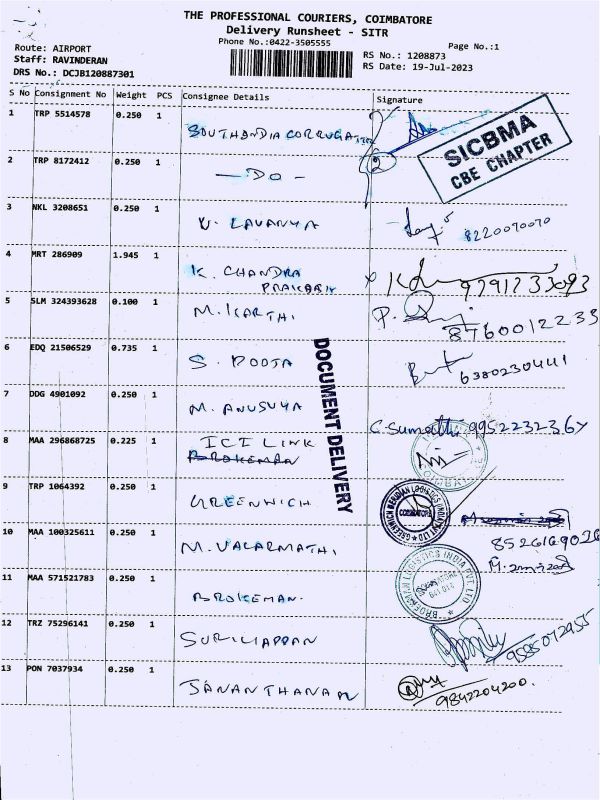 THE PROFESSIONAL COURIERS, COIMBATORE
Delivery Runsheet - SITR
Phone No.:0422-3505555
Page No.:1
Route: AIRPORT
RS No.: 1208873
Staff: RAVINDERAN
RS Date: 19-Jul-2023
DRS No.: DCJB120887301
S No Consignment No Weight PCS Consignee Details Signature
1 TRP 5514578 0.250 1
SICBMA
CBE CHAPTER
2 TRP 8172412 0.250 1 - DO -
3 NKL 3208651 0.250 1 V. LAVANYA 8220070070
4 MRT 286909 1.945 1 K. CHANDRA
PRAKASH
5 SLM 324393628 0.100 1 M. KARTHI 8760012233
6 EDQ 21506529 0.735 1 S. POOJA 6380230441
DOCUMENT DELIVERY
7 DDG 4901092 0.250 1 M. ANUSUYA C. Sumathi
8 MAA 296868725 0.225 1 ICI LINK
9 TRP 1064392 0.250 1 GREENWICH
GREENWICH MERIDIAN LOGISTICS INDIA PVT LTD
COIMBATORE
10 MAA 100325611 0.250 1 M. VALARMATHI
11 MAA 571521783 0.250 1 BROKEMAN.
BROEKMAN LOGISTICS INDIA PVT. LTD
12 TRZ 75296141 0.250 1 9585072955
13 PON 7037934 0.250 1 9842204200.